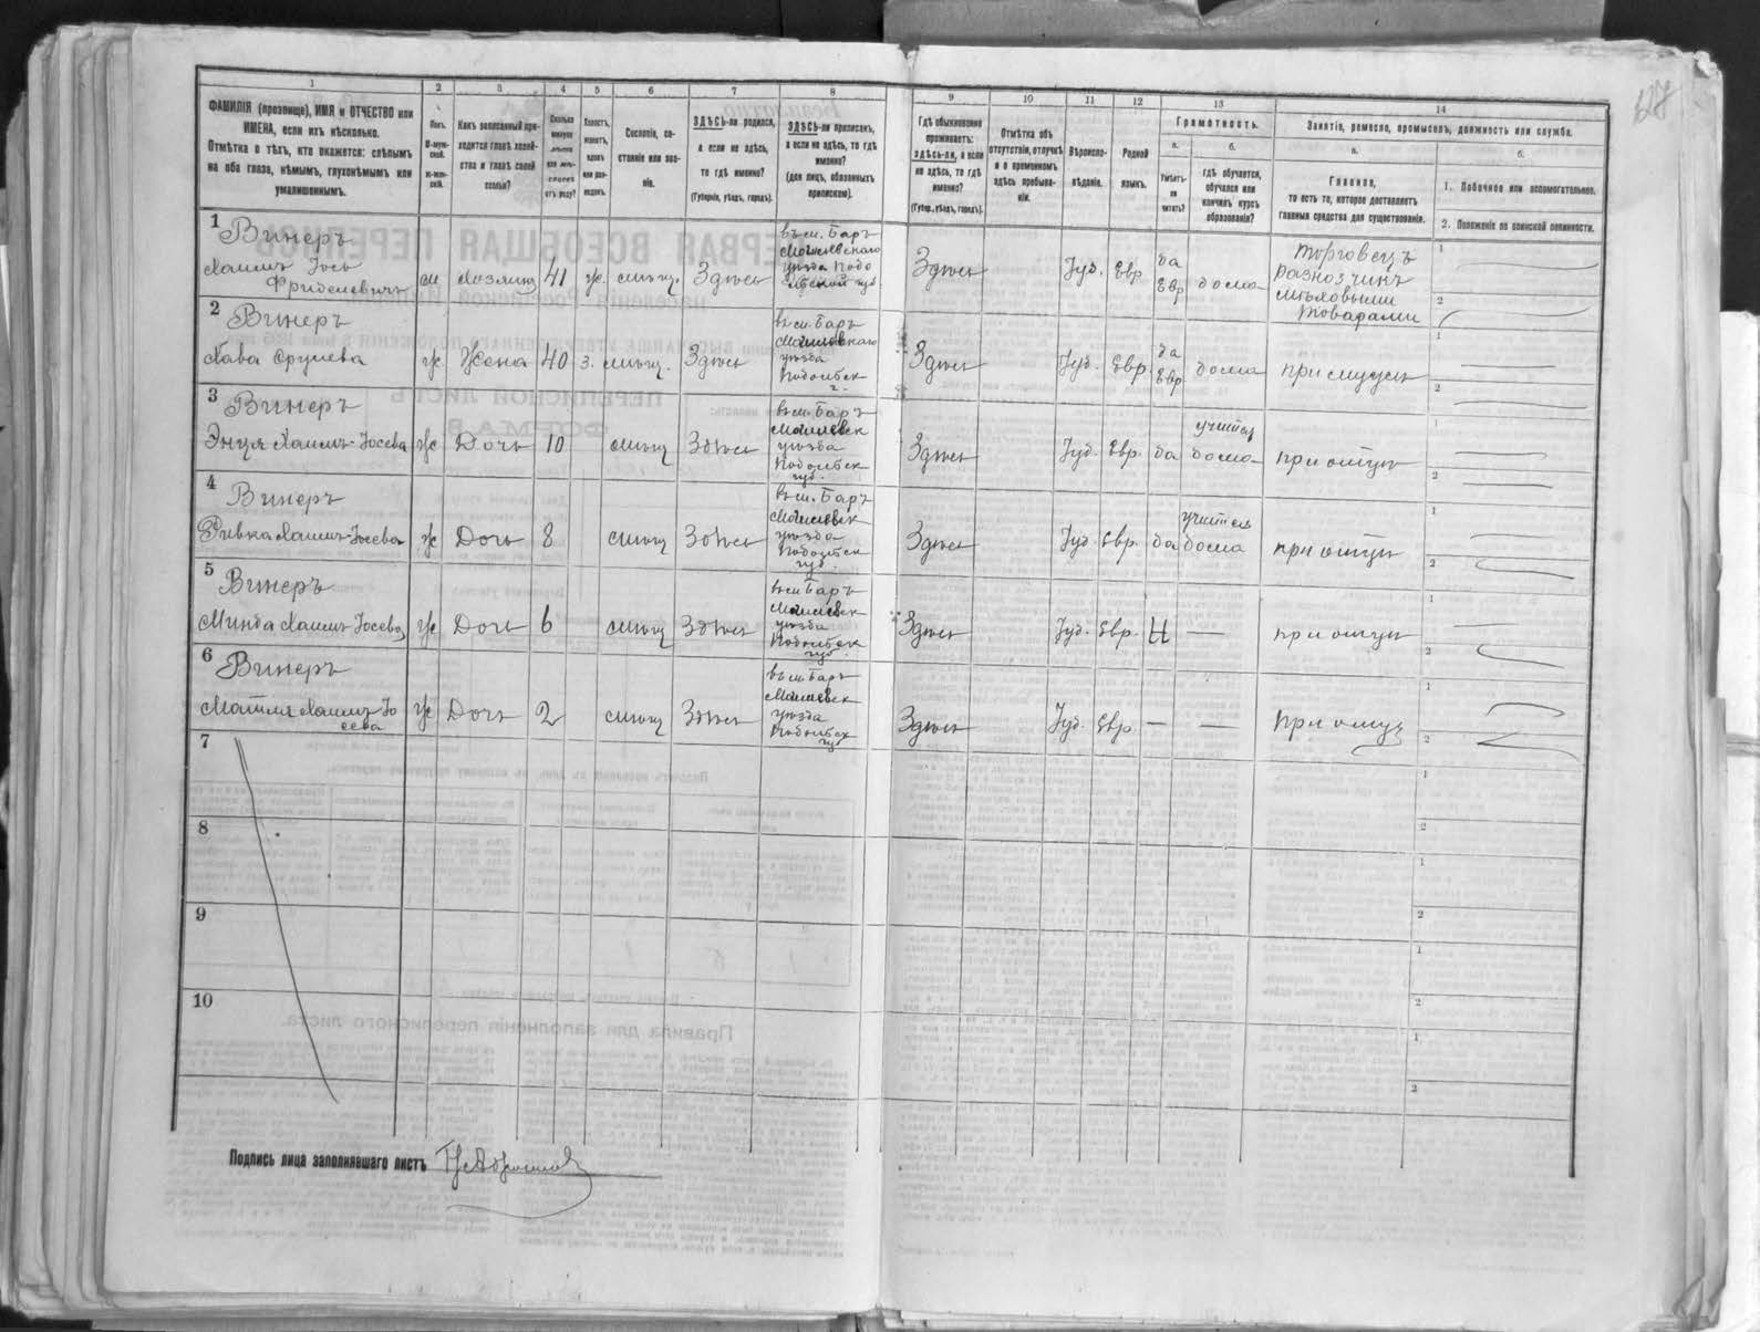 1 2 3 4 5 6 7 8 9 10 11 12 13 14
ФАМИЛІЯ (прозвище), ИМЯ и ОТЧЕСТВО или
ИМЕНА, если ихъ нѣсколько.
Отмѣтка о тѣхъ, кто окажется: слѣпымъ
на оба глаза, нѣмымъ, глухонѣмымъ или
умалишеннымъ.
Полъ.
М-муж-
ской.
Ж-жен-
скій.
Какъ записанный при-
ходится главѣ хозяй-
ства и главѣ своей
семьи?
Сколько
минуло
лѣтъ
или мѣ-
сяцевъ
отъ роду?
Холостъ,
женатъ,
вдовъ
или раз-
веденъ.
Сословіе, со-
стояніе или зва-
ніе.
ЗДѢСЬ-ли родился,
а если не здѣсь,
то гдѣ именно?
(Губернія, уѣздъ, городъ).
ЗДѢСЬ-ли приписанъ,
а если не здѣсь, то гдѣ
именно?
(для лицъ, обязанныхъ
припискою).
Гдѣ обыкновенно
проживаетъ:
ЗДѢСЬ-ли, а если
не здѣсь, то гдѣ
именно?
(Губер., уѣздъ, городъ).
Отмѣтка объ
отсутствіи, отлучкѣ
и о временномъ
здѣсь пребыва-
ніи.
Вѣроиспо-
вѣданіе.
Родной
языкъ.
Грамотность.
а.
Умѣетъ-
ли
читать?
б.
гдѣ обучается,
обучался или
кончилъ курсъ
образованія?
Занятіе, ремесло, промыселъ, должность или служба.
а.
Главное,
то есть то, которое доставляетъ
главныя средства для существованія.
б.
1. Побочное или вспомогательное.
2. Положеніе по воинской повинности.
1 Винеръ
Хаимъ Іось
Фриделевичъ
м
Хозяинъ
41
ж.
мѣщ.
Здѣсь
въ м. Баръ
Могилевскаго
уѣзда Подо
льской губ.
Здѣсь
Іуд.
Евр
да
Евр
дома
торговецъ
разнозчикъ
мѣховыми
товарами
1
2
2 Винеръ
Хава Срулева
ж
Жена
40
з.
мѣщ.
Здѣсь
въ м. Баръ
Могилевскаго
уѣзда
Подольск
г.
Здѣсь
Іуд.
Евр.
да
Евр
дома
при мужѣ
1
2
3 Винеръ
Энця Хаимъ-Іосева
ж
Дочь
10
мѣщ
Здѣсь
въ м. Баръ
Могилевск
уѣзда
Подольск
губ.
Здѣсь
Іуд.
Евр.
да
учител
дома
при отцѣ
1
2
4 Винеръ
Ривка Хаимъ-Іосева
ж
Дочь
8
мѣщ
Здѣсь
въ м. Баръ
Могилевск
уѣзда
Подольск
губ.
Здѣсь
Іуд
Евр.
да
учитель
дома
при отцѣ
1
2
5 Винеръ
Минда Хаимъ Іосева
ж
Дочь
6
мѣщ
Здѣсь
въ м Баръ
Могилевск
уѣзда
Подольск
губ.
Здѣсь
Іуд.
Евр.
Н
—
при отцѣ
1
2
6 Винеръ
Матля Хаимъ Іо
сева
ж
Дочь
2
мѣщ
Здѣсь
въ м Баръ
Могилевск
уѣзда
Подольск
губ
Здѣсь
Іуд.
Евр.
—
—
при отцѣ
1
2
7
1
2
8
1
2
9
1
2
10
1
2
Подпись лица заполнявшаго листъ